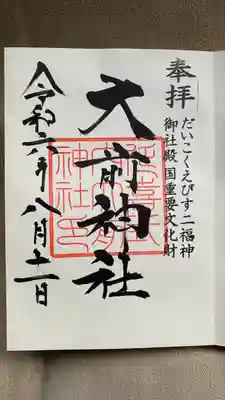 奉拝
だいこくえびす二福神
御社殿国重要文化財
大前神社
令和六年八月十一日